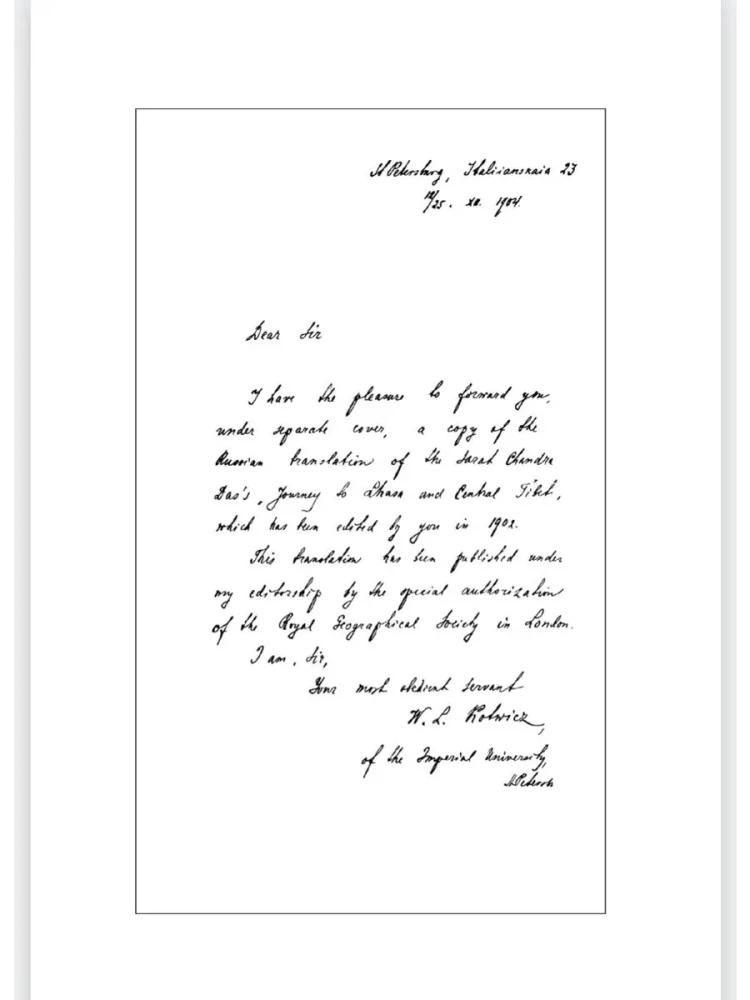 St Petersburg, Italianskaia 23
12/25. XII. 1904.
Dear Sir
I have the pleasure to forward you,
under separate cover, a copy of the
Russian translation of the Sarat Chandra
Das's „Journey to Lhasa and Central Tibet,
which has been edited by you in 1902.
This translation has been published under
my editorship by the special authorization
of the Royal Geographical Society in London.
I am, Sir,
Your most obedient servant
W. L. Kotwicz,
of the Imperial University,
St Petersb